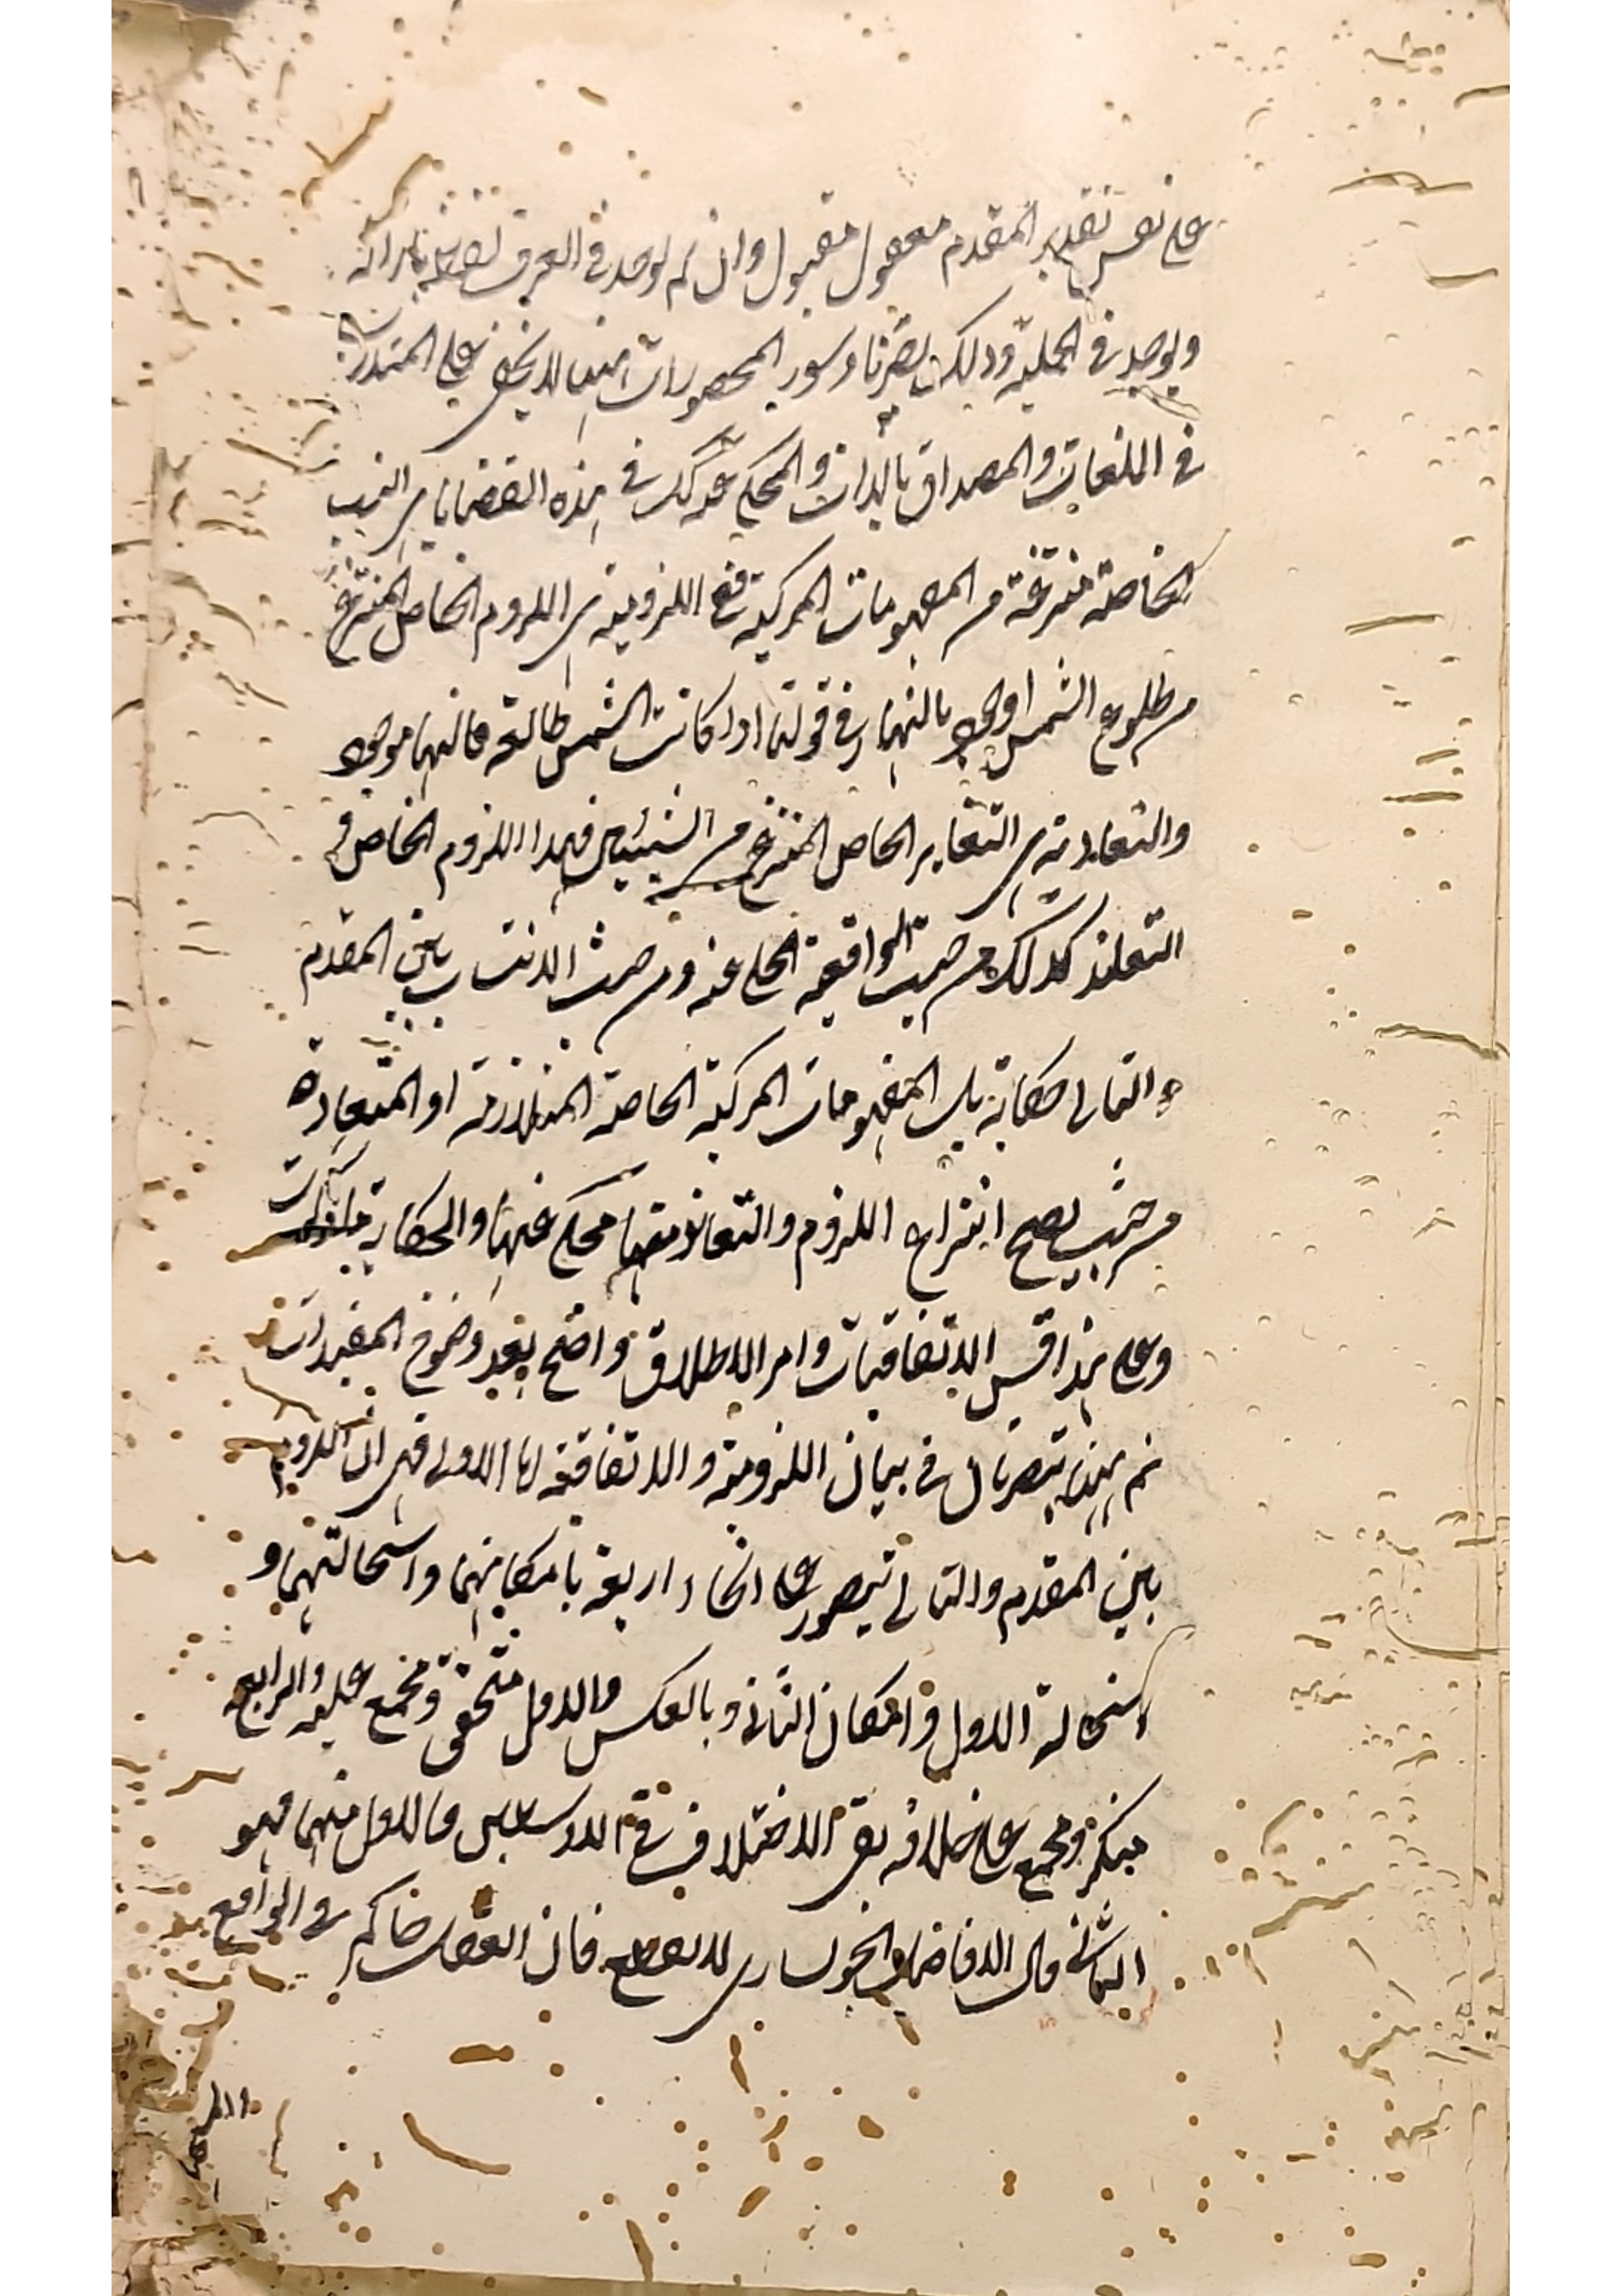 على نفس تقدير المقدم معقول مقبول وان لم يوجد في العرف
ويوجد في الحملية وذلك وسور المحصورات منها لا يخفى على المتدرب
في اللغات والمصداق بالذات والمحكي عنه كك في هذه القضايا هي النسب
الخاصة منتزعة من المفهومات المركبة ففي اللزومية هي اللزوم الخاص المنتزع
من طلوع الشمس ووجود النهار في قولنا اذا كانت الشمس طالعة فالنهار موجود
والتعاندية هي التغاير الخاص المنتزع من الشيئين فهذا اللزوم الخاص و
التعاند كذلك من حيث الواقعية محكي عنه ومن حيث الانتساب بين المقدم
والتالي حكاية بل المفهومات المركبة الخاصة المتلازمة او المتعاندة
من حيث يصح انتزاع اللزوم والتعاند منها محكي عنها والحكاية
وعلى هذا قس الاتفاقيات وامر الاطلاق واضح بعد وضوح المقيدات
ثم ههنا في بيان اللزومية والاتفاقية اما الاولى فهي ان اللزوم
بين المقدم والتالي يتصور على انحاء اربعة بامكانهما واستحالتهما و
استحالة الاول وامكان الثاني وبالعكس والاول متحقق ومجمع عليه والرابع
منكر ومجمع على خلافه بقي الاختلاف في الاوسطين والاول منهما فهو
الثاني قال الفاضل الخونساري للقطع فان العقل حاكم في الواقع